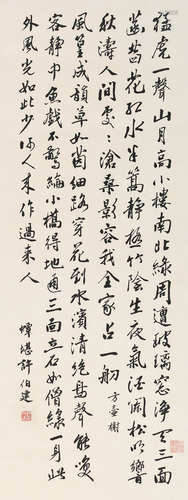 猛虎一聲山月高小樓南北綠周遭玻璃窗淨天三面
菡萏花紅水半篙靜極竹陰生夜氣酒闌松響
秋濤人間處處滄桑影容我全家占一舠 方壺榭
風篁成韻草如茵細路穿花到水濱清絕鳥聲能
容靜中魚戲不驚綸小橋得地通三面立石如僧綠一身此
外風光如此少何人來作過來人
許伯建